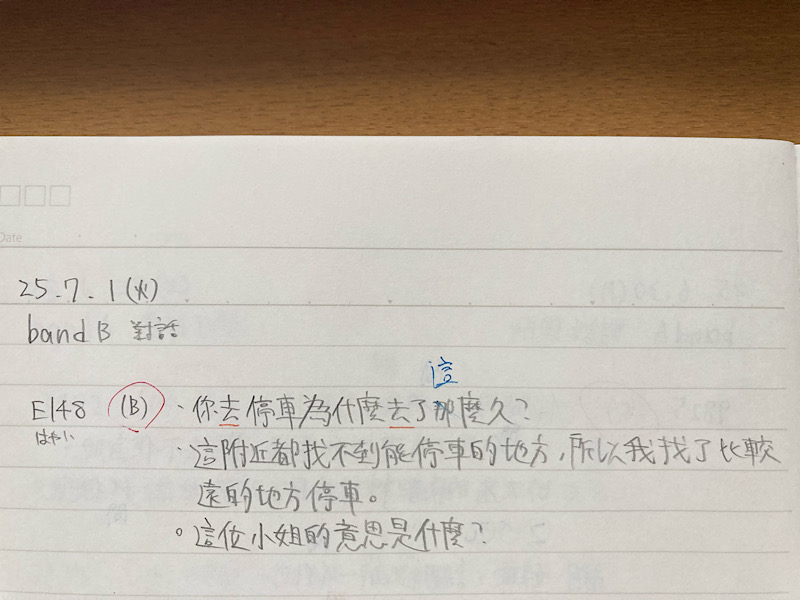 Date
25.7.1(火)
band B 對話
這
E148 (B) ・你去停車為什麼去了那麼久？
はやい
・這附近都找不到能停車的地方，所以我找了比較
遠的地方停車。
。這位小姐的意思是什麼？